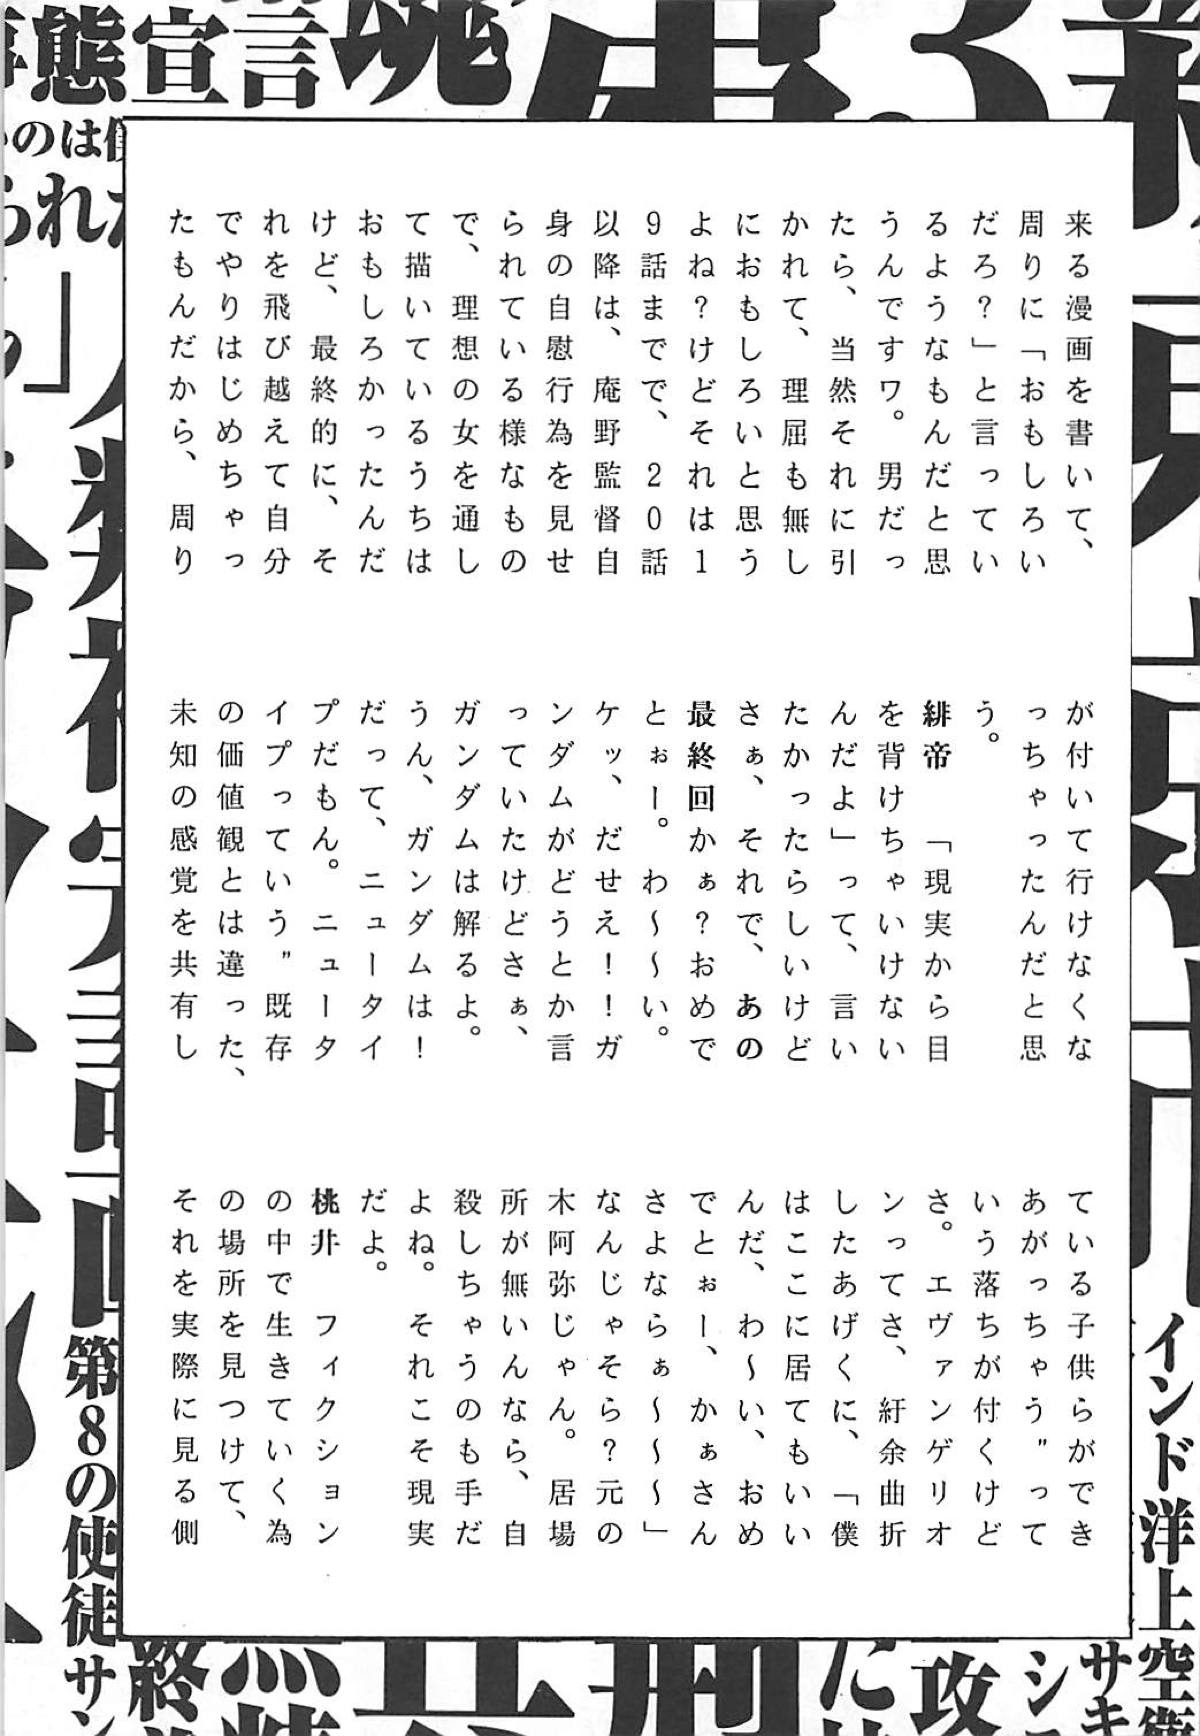 来る漫画を書いて、
周りに「おもしろい
だろ？」と言ってい
るようなもんだと思
うんですワ。男だっ
たら、当然それに引
かれて、理屈も無し
におもしろいと思う
よね？けどそれは１
９話までで、２０話
以降は、庵野監督自
身の自慰行為を見せ
られている様なもの
で、理想の女を通し
て描いているうちは
おもしろかったんだ
けど、最終的に、そ
れを飛び越えて自分
でやりはじめちゃっ
たもんだから、周り
が付いて行けなくな
っちゃったんだと思
う。
緋帝　「現実から目
を背けちゃいけない
んだよ」って、言い
たかったらしいけど
さぁ、それで、あの
最終回かぁ？おめで
とぉー。わ～～い。
ケッ、だせえ！！ガ
ンダムがどうとか言
っていたけどさぁ、
ガンダムは解るよ。
うん、ガンダムは！
だって、ニュータイ
プだもん。ニュータ
イプっていう〝既存
の価値観とは違った、
未知の感覚を共有し
ている子供らができ
あがっちゃう〟って
いう落ちが付くけど
さ。エヴァンゲリオ
ンってさ、紆余曲折
したあげくに、「僕
はここに居てもいい
んだ、わ～い、おめ
でとぉー、かぁさん
さよならぁ～～～」
なんじゃそら？元の
木阿弥じゃん。居場
所が無いんなら、自
殺しちゃうのも手だ
よね。それこそ現実
だよ。
桃井　フィクション
の中で生きていく為
の場所を見つけて、
それを実際に見る側
態宣言
のは僕
られた
人類補完計画
第8の使徒サン
インド洋上空衛
終
た
攻
シ
サキ